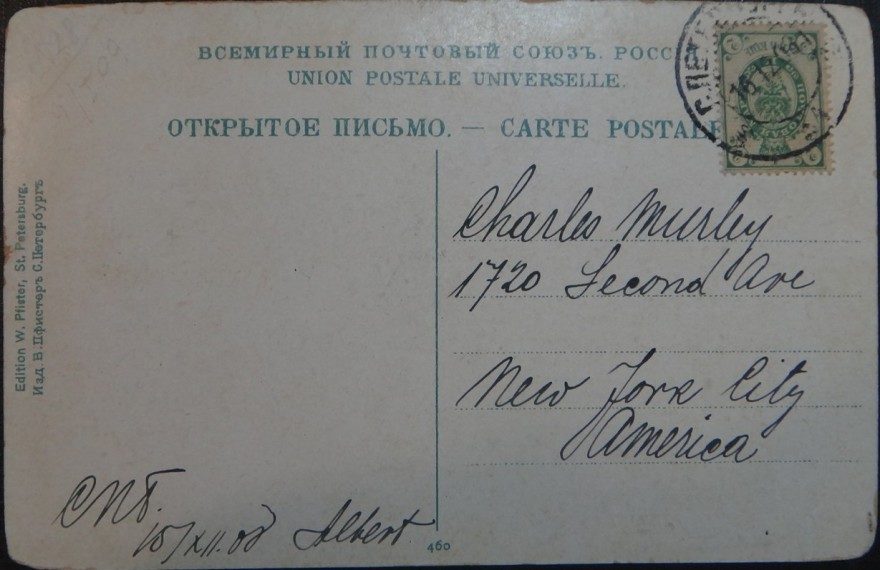 ВСЕМИРНЫЙ ПОЧТОВЫЙ СОЮЗЪ. РОССІ
UNION POSTALE UNIVERSELLE.
ОТКРЫТОЕ ПИСЬМО. — CARTE POSTALE
Edition W. Pfister, St. Petersburg.
Изд. В. Пфистеръ С.Петербургъ
Charles Murley
1720 Second Ave
New York City
America
СПб.
15/XII.08 Albert
460